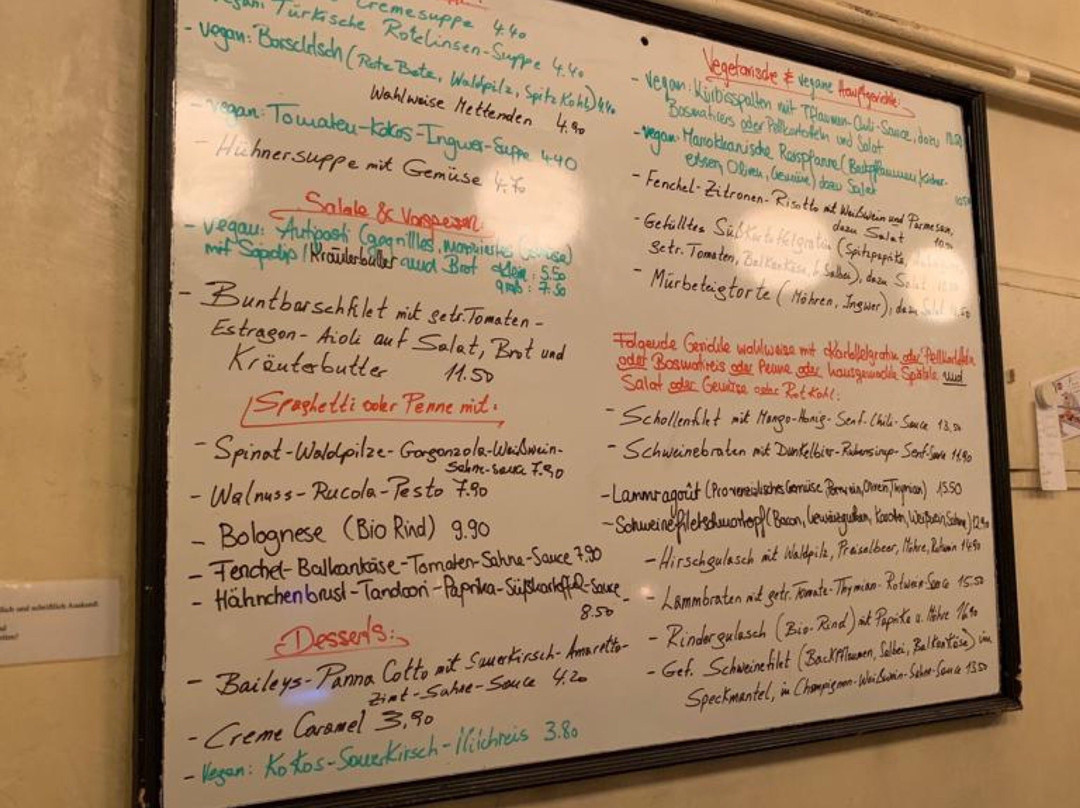 Cremesuppe 4.40
vegan: Türkische Rotelinsen-Suppe 4.40
- vegan: Borschtsch (Rote Bete, Waldpilz, Spitzkohl) 4.40
Wahlweise Mettenden 4.90
- vegan: Tomaten-Kokos-Ingwer-Suppe 4.40
- Hühnersuppe mit Gemüse 4.70
Salate & Vorspeisen:
- vegan: Antipasti (gegrilltes, mariniertes Gemüse)
mit Sojadip / Kräuterbutter und Brot klein: 5.50
groß: 7.50
- Buntbarschfilet mit getr. Tomaten-
Estragon-Aioli auf Salat, Brot und
Kräuterbutter 11.50
Spaghetti oder Penne mit:
- Spinat-Waldpilze-Gorgonzola-Weißwein-
Sahne-Sauce 7.90
- Walnuss-Rucola-Pesto 7.90
- Bolognese (Bio Rind) 9.90
- Fenchel-Balkankäse-Tomaten-Sahne-Sauce 7.90
- Hähnchenbrust-Tandoori-Paprika-Süßkartoffel-Sauce
8.50
Desserts:
- Baileys-Panna Cotto mit Sauerkirsch-Amaretto-
Zimt-Sahne-Sauce 4.20
- Creme Caramel 3,90
- Vegan: Kokos-Sauerkirsch-Milchreis 3.80
Vegetarische & vegane Hauptgerichte:
- vegan: Kürbisspalten mit Pflaumen-Chili-Sauce, dazu
Bosmatireis oder Pellkartoffeln und Salat
- vegan: Marokkanische Reispfanne (Backpflaumen, Kicher-
erbsen, Oliven, Gemüse) dazu Salat
- Fenchel-Zitronen-Risotto mit Weißwein und Parmesan,
dazu Salat
- Gefülltes Süßkartoffelgratin (Spitzpaprika,
getr. Tomaten, Balkankäse, Salbei), dazu Salat
- Mürbeteigtorte (Möhren, Ingwer), dazu Salat
Folgende Gerichte wahlweise mit Kartoffelgratin oder Pellkartoffeln
oder Bosmatireis oder Penne oder hausgemachte Spätzle und
Salat oder Gemüse oder Rotkohl:
- Schollenfilet mit Mango-Honig-Senf-Chili-Sauce 13.50
- Schweinebraten mit Dunkelbier-Rübensirup-Senf-Sauce 11.90
- Lammragoût (Provenzialisches Gemüse, Rotwein, Oliven, Thymian) 15.50
- Schweinefiletschmortopf (Bacon, Gewürzgurken, Karotten, Weißwein, Sahne) 12.90
- Hirschgulasch mit Waldpilz, Preiselbeer, Möhre, Rotwein 14.90
- Lammbraten mit getr. Tomate-Thymian-Rotwein-Sauce 15.50
- Rindergulasch (Bio-Rind) mit Paprika u. Möhre 16.90
- Gef. Schweinefilet (Backpflaumen, Salbei, Balkankäse) im
Speckmantel, in Champignon-Weißwein-Sahne-Sauce 13.50
lich und schriftlich Auskunft